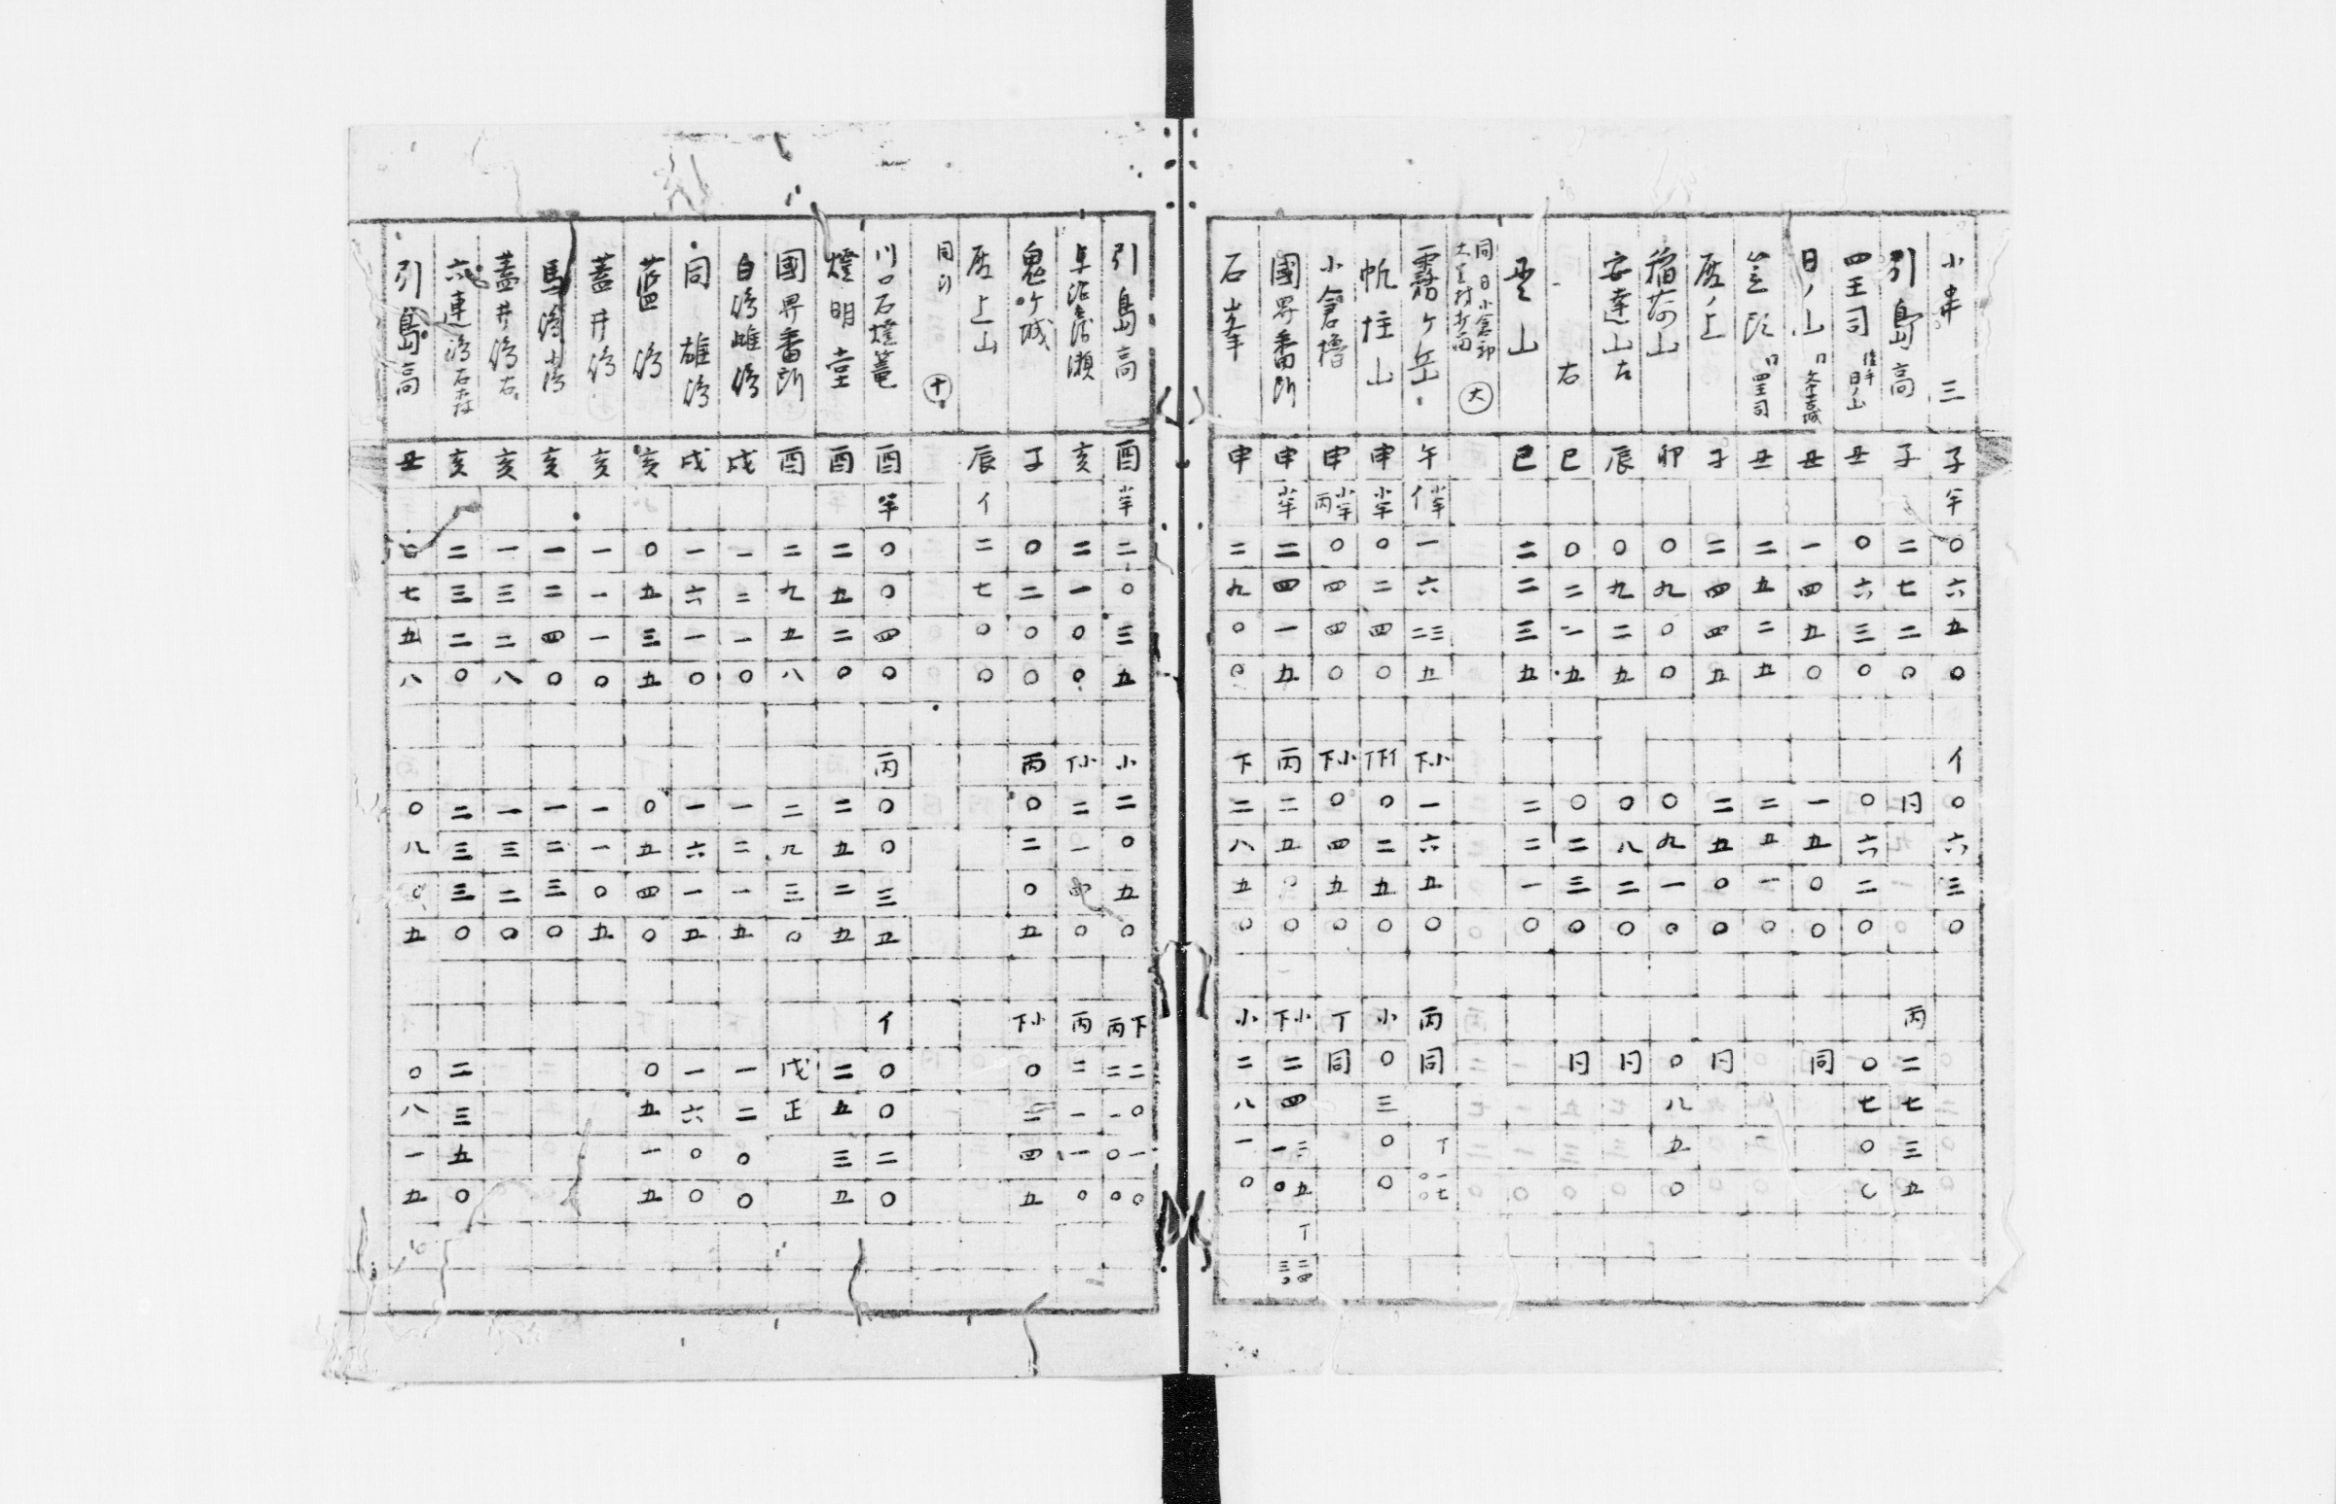 小串 三 子 半 〇 六 五 〇 イ 〇 六 三 〇
引島高 子 二 七 二 〇 同 丙 二 七 三 五
四王司 日ノ山 丑 〇 六 三 〇 〇 六 二 〇 〇 七 〇 〇
日ノ山 丑 一 四 五 〇 一 五 〇 〇 同
四王司 丑 二 五 二 五 二 五 一 〇
子 二 四 四 五 二 五 〇 〇 同
稲荷山 卯 〇 九 〇 〇 〇 九 一 〇 〇 八 五 〇
安達山 右 辰 〇 九 二 五 〇 八 二 〇 同
右 巳 〇 二 一 五 〇 二 三 〇 同
山 巳 二 二 三 五 二 二 一 〇
同日小倉 大
霧ヶ岳 午 イ 小半 一 六 三 二 五 下小 一 六 五 〇 丙 同 丁
帆柱山 申 小半 〇 二 四 〇 〇 二 五 〇 小 〇 三 〇 〇
小倉櫓 申 小半 丙 〇 四 四 〇 下小 〇 四 五 〇 丁 同
國界番所 申 小半 二 四 一 五 丙 二 五 〇 〇 下小 二 四
石峯 申 二 九 〇 〇 下 二 八 五 〇 小 二 八 一 〇
引島高 酉 小半 二 〇 三 五 小 二 〇 五 〇 下 丙
亥 二 一 〇 〇 下小 二 一 〇 丙 二 一 一 〇
鬼ヶ城 子 〇 二 〇 〇 丙 〇 二 〇 五 下小 〇 二 四 五
上山 辰 イ 二 七 〇 〇
同 十
川口石燈篭 酉 半 〇 〇 四 〇 丙 〇 〇 三 五 イ 〇 〇 二 〇
燈明堂 酉 二 五 二 〇 二 五 二 五 二 五 三 五
國界番所 酉 二 九 五 八 二 九 三 〇 戌 正
白嶋雌嶋 戌 一 二 一 〇 一 二 一 五 一 二 〇 〇
同 雄嶋 戌 一 六 一 〇 一 六 一 五 一 六 〇 〇
藍嶋 亥 〇 五 三 五 〇 五 四 〇 〇 五 一 五
蓋井嶋 亥 一 一 一 〇 一 一 〇 五
馬嶋 亥 一 二 四 〇 一 二 三 〇
蓋井嶋 右 亥 一 三 二 八 一 三 二 〇
六連嶋 亥 二 三 二 〇 二 三 三 〇 二 三 五 〇
引島高 丑 〇 七 五 八 〇 八 〇 五 〇 八 一 五